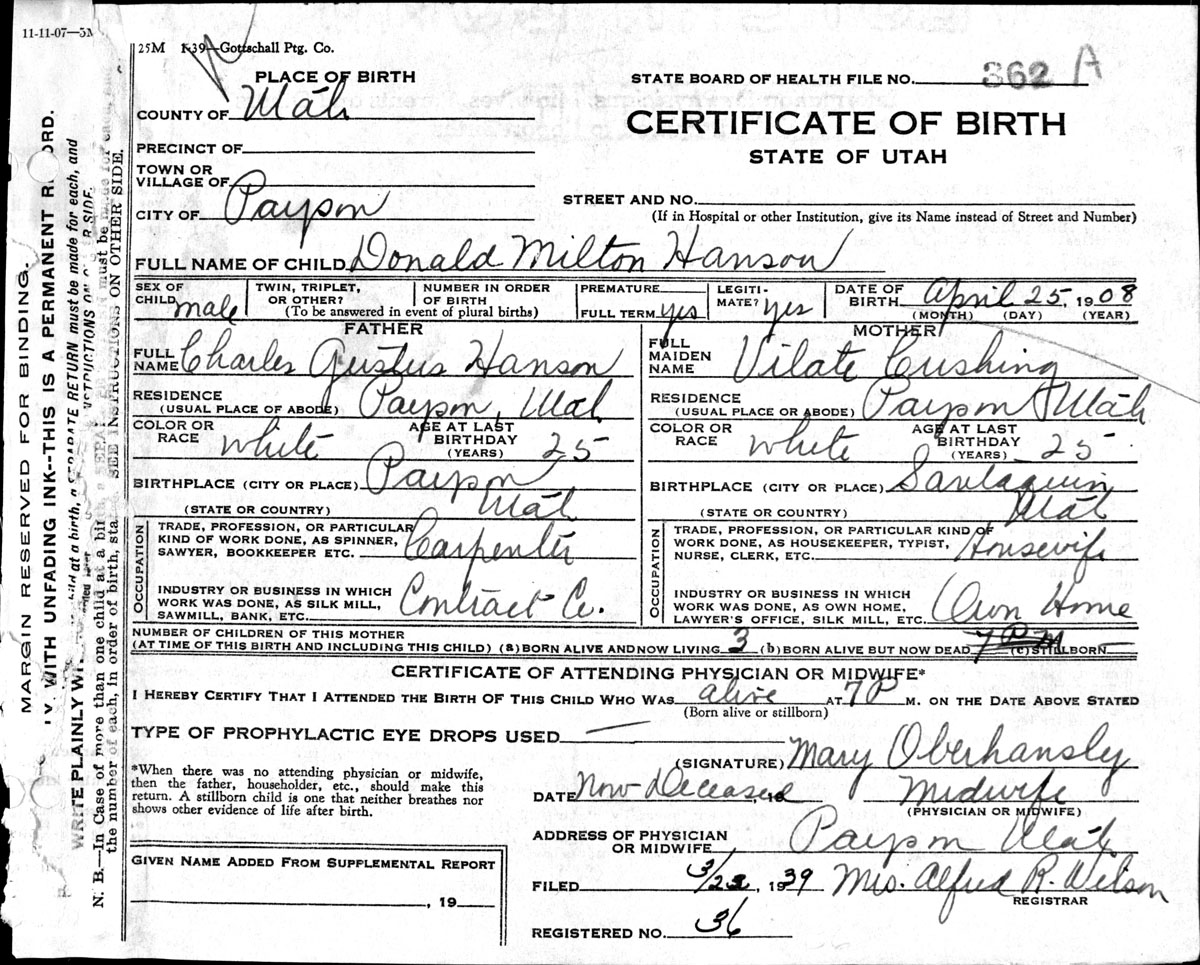 11-11-07—5M
25M 1-39—Gottschall Ptg. Co.
PLACE OF BIRTH
COUNTY OF Utah
PRECINCT OF
TOWN OR
VILLAGE OF
CITY OF Payson
STATE BOARD OF HEALTH FILE NO. 362 A
CERTIFICATE OF BIRTH
STATE OF UTAH
STREET AND NO.
(If in Hospital or other Institution, give its Name instead of Street and Number)
FULL NAME OF CHILD Donald Milton Hanson
SEX OF CHILD male
TWIN, TRIPLET, OR OTHER?
NUMBER IN ORDER OF BIRTH
(To be answered in event of plural births)
PREMATURE
FULL TERM yes
LEGITI-MATE? yes
DATE OF BIRTH April 25, 1908
(MONTH) (DAY) (YEAR)
FATHER
FULL NAME Charles Gustus Hanson
RESIDENCE
(USUAL PLACE OF ABODE) Payson, Utah
COLOR OR RACE white
AGE AT LAST BIRTHDAY (YEARS) 25
BIRTHPLACE (CITY OR PLACE) Payson
(STATE OR COUNTRY) Utah
OCCUPATION
TRADE, PROFESSION, OR PARTICULAR
KIND OF WORK DONE, AS SPINNER,
SAWYER, BOOKKEEPER ETC. Carpenter
INDUSTRY OR BUSINESS IN WHICH
WORK WAS DONE, AS SILK MILL,
SAWMILL, BANK, ETC. Contract Co.
MOTHER
FULL MAIDEN NAME Vilate Cushing
RESIDENCE
(USUAL PLACE OR ABODE) Payson Utah
COLOR OR RACE white
AGE AT LAST BIRTHDAY (YEARS) 25
BIRTHPLACE (CITY OR PLACE) Santaquin
(STATE OR COUNTRY) Utah
OCCUPATION
TRADE, PROFESSION, OR PARTICULAR KIND OF
WORK DONE, AS HOUSEKEEPER, TYPIST,
NURSE, CLERK, ETC. Housewife
INDUSTRY OR BUSINESS IN WHICH
WORK WAS DONE, AS OWN HOME,
LAWYER'S OFFICE, SILK MILL, ETC. Own Home
NUMBER OF CHILDREN OF THIS MOTHER
(AT TIME OF THIS BIRTH AND INCLUDING THIS CHILD) (a) BORN ALIVE AND NOW LIVING 3 (b) BORN ALIVE BUT NOW DEAD 7 P M (c) STILLBORN
CERTIFICATE OF ATTENDING PHYSICIAN OR MIDWIFE*
I HEREBY CERTIFY THAT I ATTENDED THE BIRTH OF THIS CHILD WHO WAS alive AT 7 P M. ON THE DATE ABOVE STATED
(Born alive or stillborn)
TYPE OF PROPHYLACTIC EYE DROPS USED —
*When there was no attending physician or midwife,
then the father, householder, etc., should make this
return. A stillborn child is one that neither breathes nor
shows other evidence of life after birth.
(SIGNATURE) Mary Oberhansly
DATE Now Deceased, 19
Midwife
(PHYSICIAN OR MIDWIFE)
ADDRESS OF PHYSICIAN
OR MIDWIFE Payson Utah
GIVEN NAME ADDED FROM SUPPLEMENTAL REPORT
, 19
FILED 3/22, 1939 Mrs. Alfred R. Wilson
REGISTRAR
REGISTERED NO. 36
MARGIN RESERVED FOR BINDING.
WITH UNFADING INK--THIS IS A PERMANENT
WRITE PLAINLY
RETURN must be made for each, and
N. B.—In Case of more than one child at a
the number of each, in order of birth,
SEE INSTRUCTIONS ON OTHER SIDE.